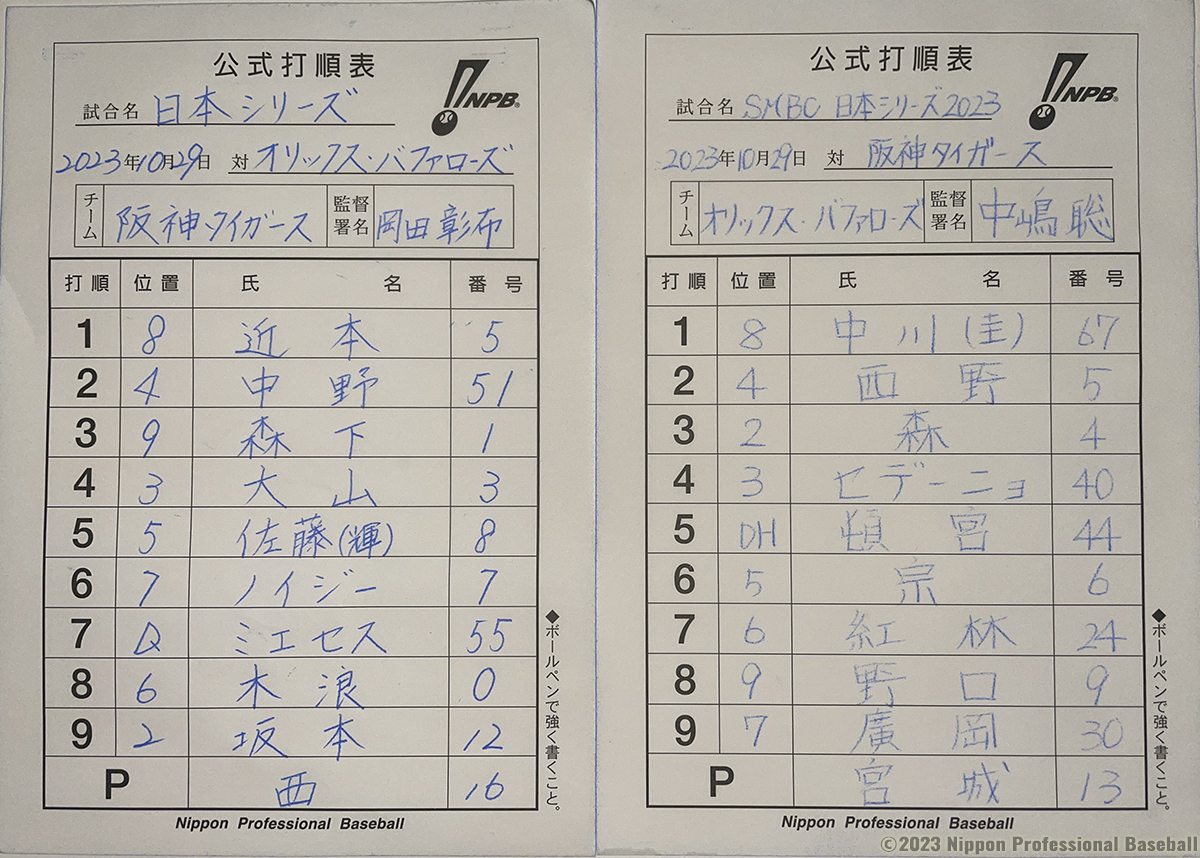 公式打順表
NPB
試合名 日本シリーズ
2023年10月29日 対 オリックス・バファローズ
チーム 阪神タイガース 監督署名 岡田彰布
打順 位置 氏名 番号
1 8 近本 5
2 4 中野 51
3 9 森下 1
4 3 大山 3
5 5 佐藤(輝) 8
6 7 ノイジー 7
7 D ミエセス 55
8 6 木浪 0
9 2 坂本 12
P 西 16
◆ボールペンで強く書くこと。
Nippon Professional Baseball
公式打順表
NPB
試合名 SMBC 日本シリーズ2023
2023年10月29日 対 阪神タイガース
チーム オリックス・バファローズ 監督署名 中嶋聡
打順 位置 氏名 番号
1 8 中川(圭) 67
2 4 西野 5
3 2 森 4
4 3 セデーニョ 40
5 DH 頓宮 44
6 5 宗 6
7 6 紅林 24
8 9 野口 9
9 7 廣岡 30
P 宮城 13
◆ボールペンで強く書くこと。
Nippon Professional Baseball
©2023 Nippon Professional Baseball